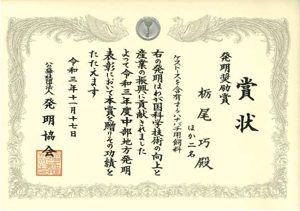 賞状
発明奨励賞
栃尾 巧殿
ほか二名
右の発明はわが国科学技術の向上と
産業の振興に貢献されました
よつて令和三年度中部地方発明
表彰において本賞を贈りその功績を
たたえます
令和三年十一月十七日
公益社団法人 発明協会